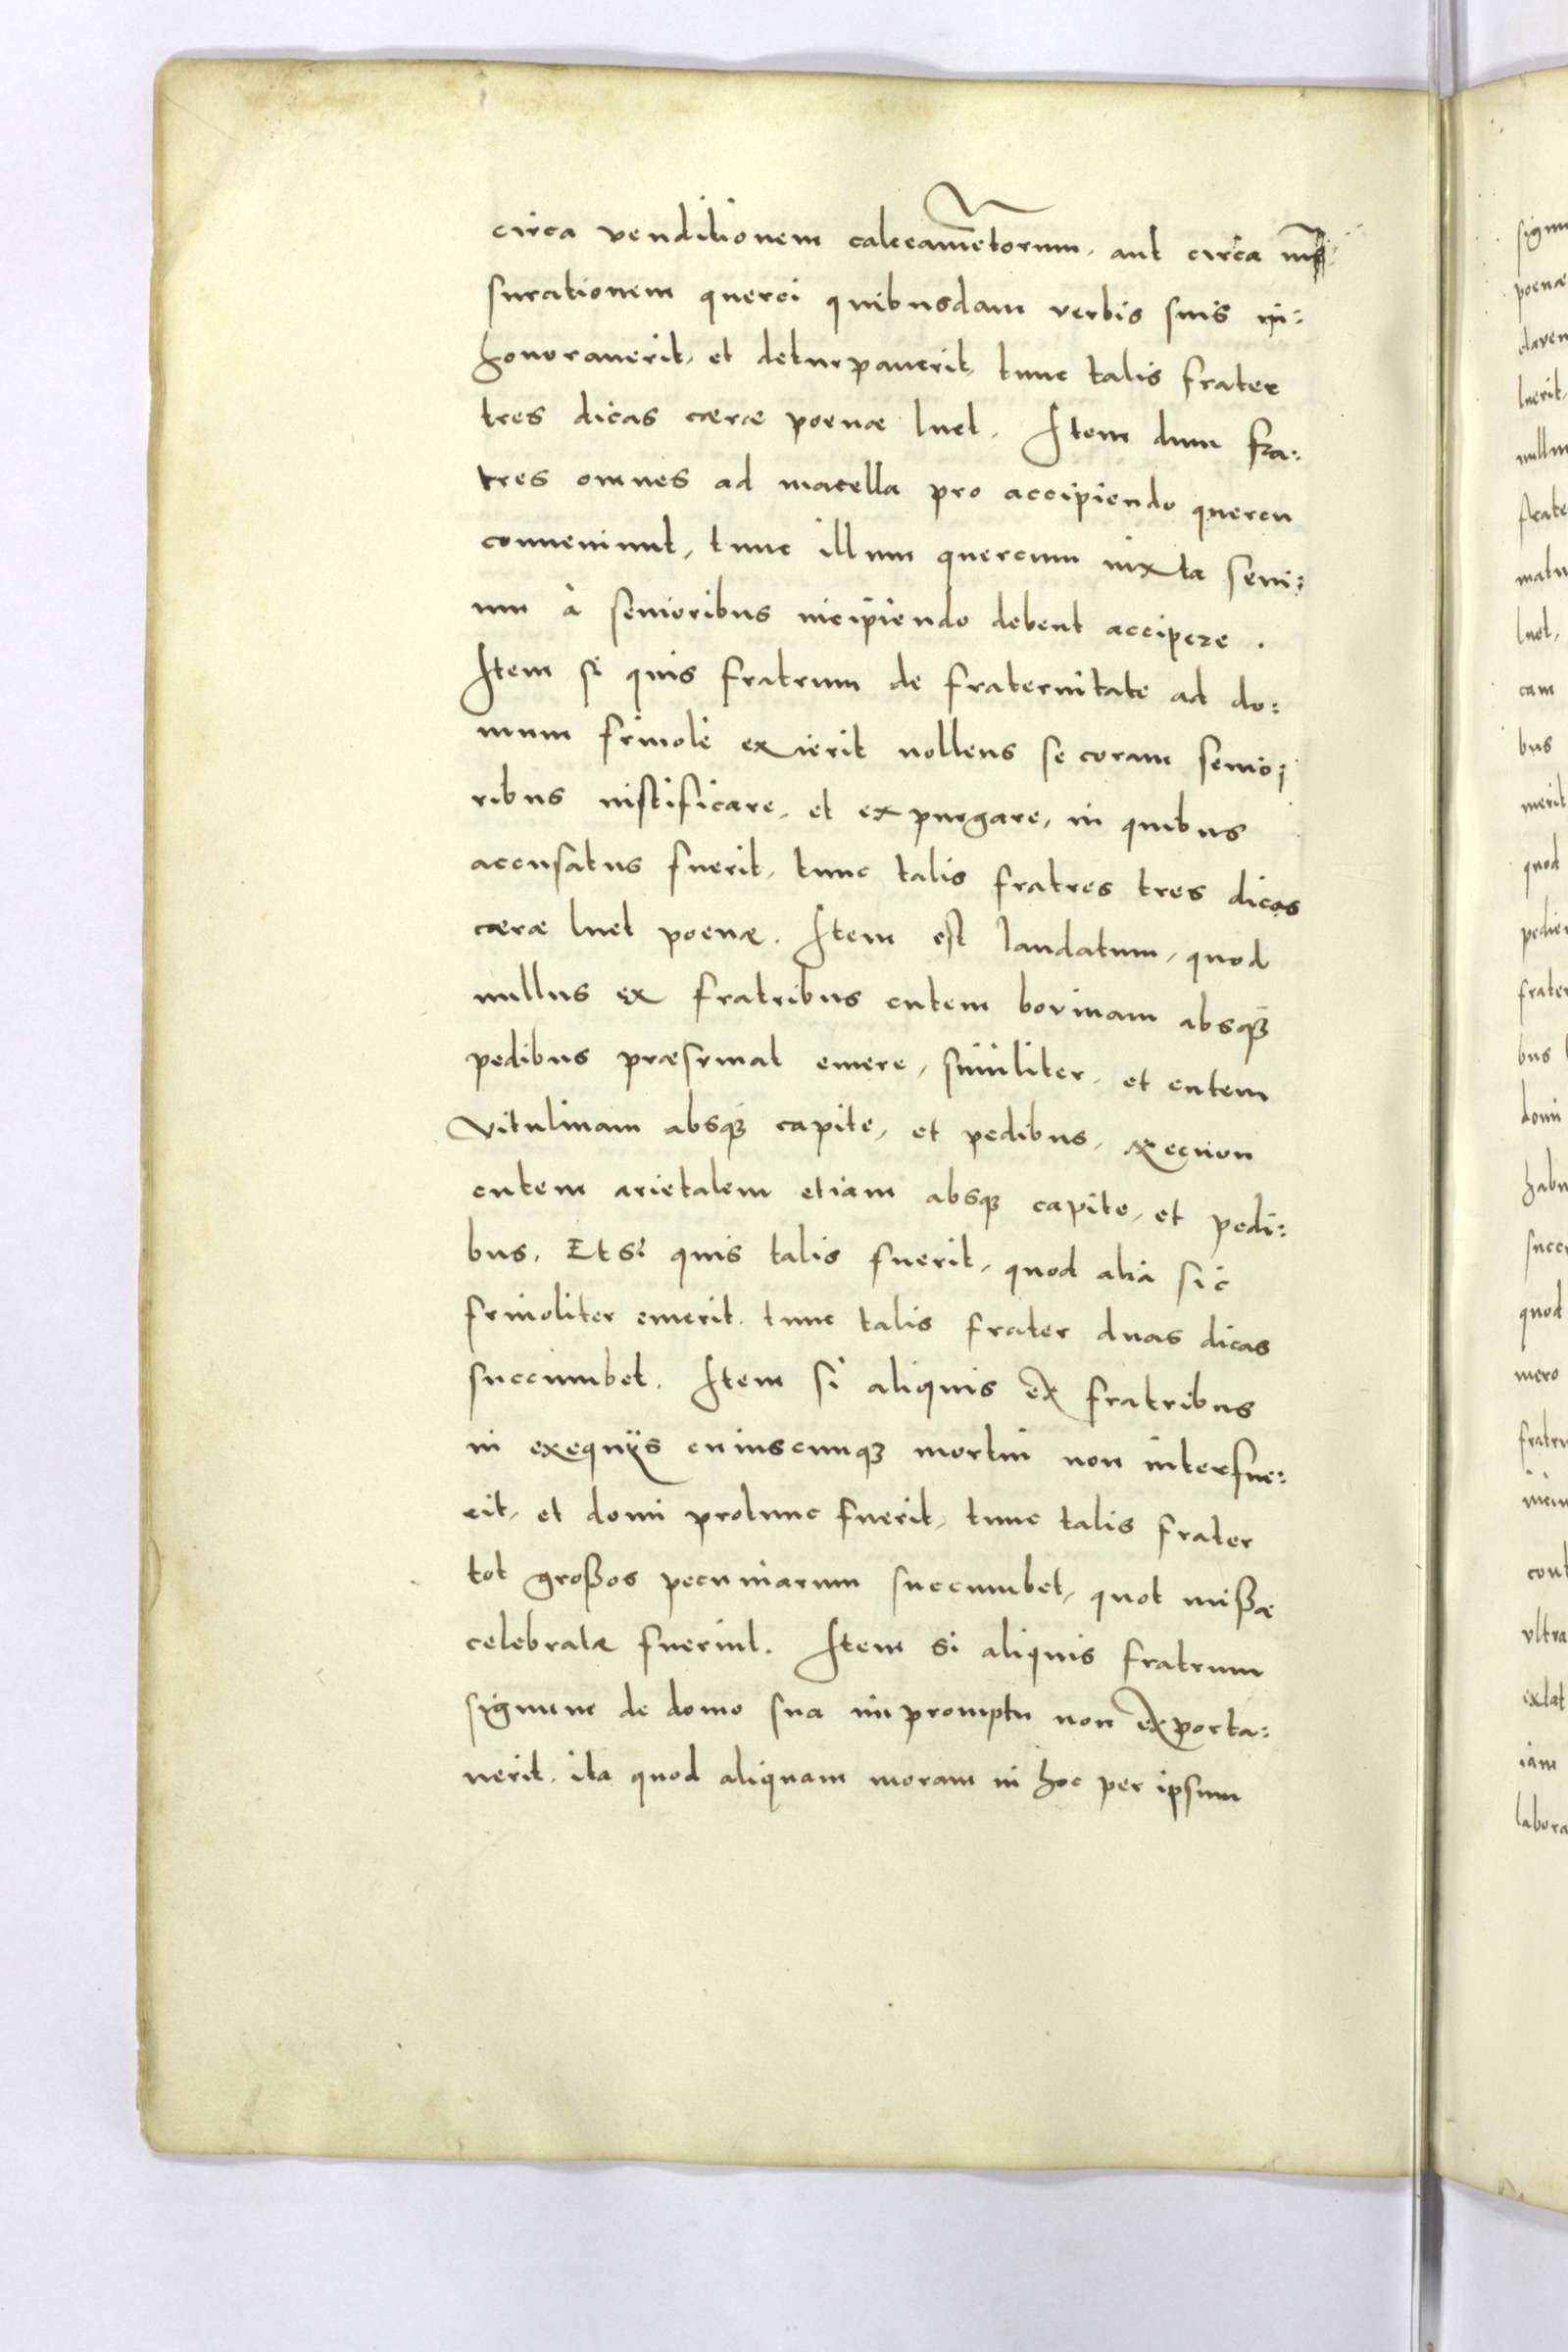 circa venditionem calceam̃etorum, aut circa
surationem querci quibusdam verbis suis in:
honorauerit, et deturpauerit, tunc talis frater
tres dicas cæræ poenæ luet. Item dum fra:
tres omnes ad macella pro accipiendo quercu
conueniunt, tunc illum quercum iuxta seni:
um à senioribus incipiendo debent accipere.
Item si quis fratrum de fraternitate ad do:
mum friuole exierit nollens se coram senio:
ribus iustificare, et expurgare, in quibus
accusatus fuerit, tunc talis fratres tres dicas
cæræ luet poenæ. Item est laudatum, quod
nullus ex fratribus cutem bovinam absqꝫ
pedibus præsumat emere, similiter, et cutem
vitulinam absqꝫ capite, et pedibus, necnon
cutem arietalem etiam absqꝫ capite, et pedi:
bus. Et si quis talis fuerit, quod alia sic
friuoliter emerit, tunc talis frater duas dicas
succumbet. Item si aliquis ex fratribus
in exequijs cuiuscunqꝫ mortui non interfue:
rit, et domi protunc fuerit, tunc talis frater
tot großos pecuniarum succumbet, quot mißæ
celebratæ fuerint. Item si aliquis fratrum
signum de domo sua in promptu non exporta:
uerit, ita quod aliquam moram in hoc per ipsum